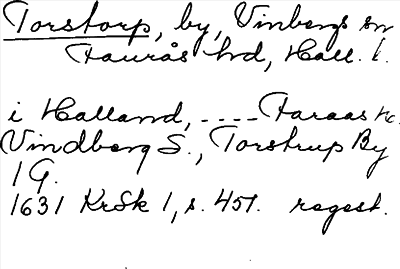 Torstorp, by, Vinbergs sn
Faurås hd, Hall. l.
i Halland, ---- Faraas H.
Vindberg S., Torstrup By
1 G.
1631 KrSk 1, s. 451. regest.